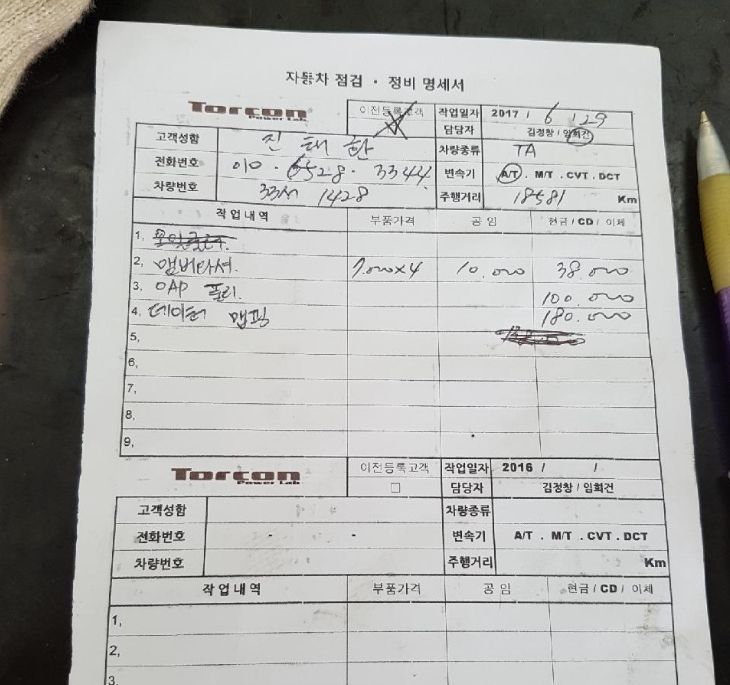 자동차 점검 · 정비 명세서
Torcon Power Lab 이전등록고객 작업일자 2017 / 6 . 29
담당자 김정창 / 임희건
고객성함 진태한 차량종류 TA
전화번호 010 · 6528 · 3344 변속기 A/T . M/T . CVT . DCT
차량번호 33서 1428 주행거리 18581 Km
작업내역 부품가격 공임 현금 / CD / 이체
1,
2, 맴버와셔. 7.000×4 10.000 38.000
3, OAP 풀리. 100.000
4, 데이터 맵핑 180.000
5,
6,
7,
8,
9,
Torcon Power Lab 이전등록고객 작업일자 2016 / /
□ 담당자 김정창 / 임희건
고객성함 차량종류
전화번호 - - 변속기 A/T . M/T . CVT . DCT
차량번호 주행거리 Km
작업내역 부품가격 공임 현금 / CD / 이체
1,
2,
3.